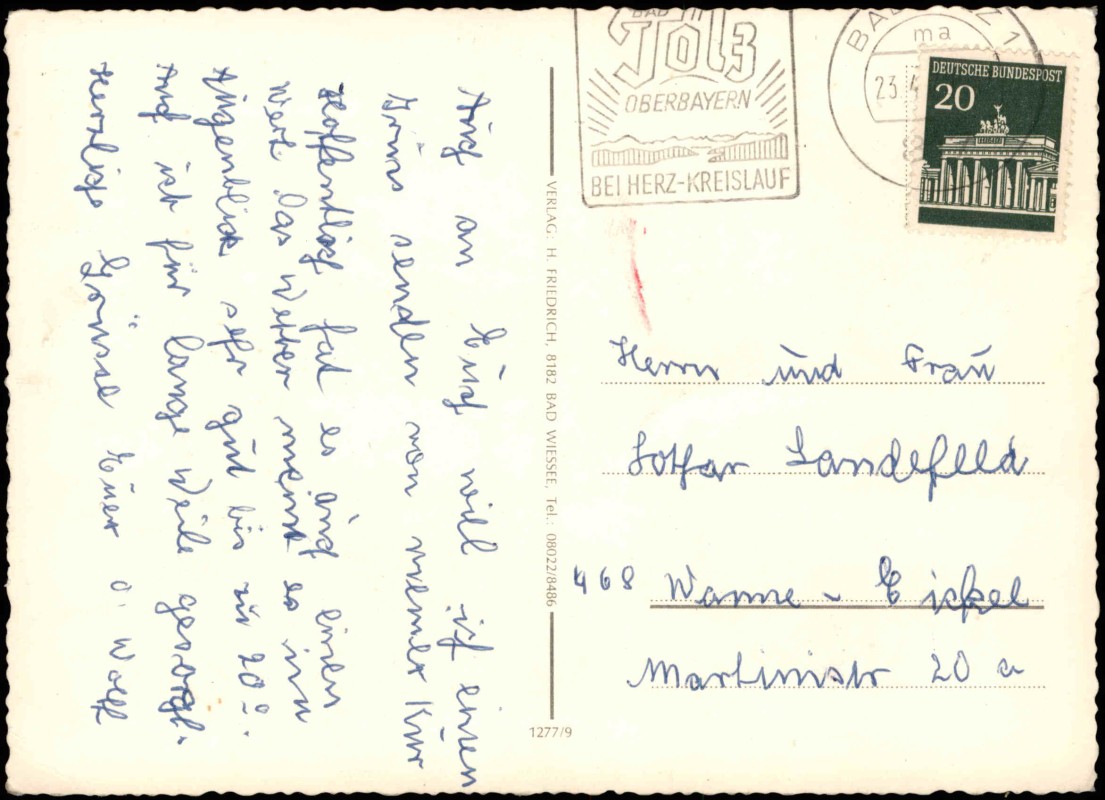 Auch an Euch will ich einen
Grüss senden von meiner Kur
Hoffentlich hat es auch einen
Wert. Das Wetter meint es im
Augenblick sehr gut bis zu 20°.
Auch ist für lange Weile gesorgt.
Herzliche Grüsse Euer O. Wolf
VERLAG: H. FRIEDRICH, 8182 BAD WIESSEE, Tel.: 08022/8486
1277/9
BAD
Tölz
OBERBAYERN
BEI HERZ-KREISLAUF
BAD TÖLZ 1
ma
23.4
DEUTSCHE BUNDESPOST
20
Herrn und Frau
Lothar Landefeld
468 Wanne-Eickel
Martinistr 20 a